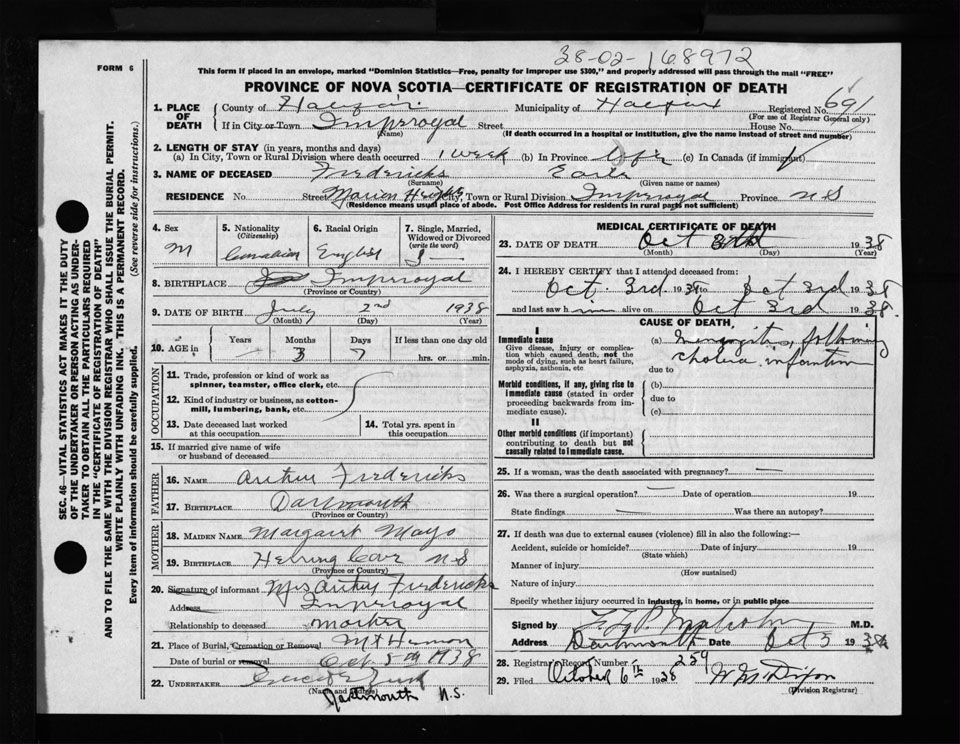 38-02-168972
FORM 6
This form if placed in an envelope, marked "Dominion Statistics—Free, penalty for improper use $300," and properly addressed will pass through the mail "FREE"
PROVINCE OF NOVA SCOTIA—CERTIFICATE OF REGISTRATION OF DEATH
1. PLACE OF DEATH County of Halifax Municipality of Halifax Registered No. 691
(For use of Registrar General only)
If in City or Town Imperoyal Street House No.
(Name) (If death occurred in a hospital or institution, give the name instead of street and number)
2. LENGTH OF STAY (in years, months and days)
(a) In City, Town or Rural Division where death occurred 1 week (b) In Province Life (c) In Canada (if immigrant)
3. NAME OF DECEASED Fredericks Earle
(Surname) (Given name or names)
RESIDENCE No. Street Marion Heights City, Town or Rural Division Imperoyal Province N S
(Residence means usual place of abode. Post Office Address for residents in rural parts not sufficient)
SEC. 46—VITAL STATISTICS ACT MAKES IT THE DUTY
OF THE UNDERTAKER OR PERSON ACTING AS UNDER-
TAKER TO OBTAIN ALL THE PARTICULARS REQUIRED
IN THE "CERTIFICATE OF REGISTRATION OF DEATH"
AND TO FILE THE SAME WITH THE DIVISION REGISTRAR WHO SHALL ISSUE THE BURIAL PERMIT.
WRITE PLAINLY WITH UNFADING INK. THIS IS A PERMANENT RECORD.
Every item of information should be carefully supplied. (See reverse side for instructions.)
4. Sex
M
5. Nationality
(Citizenship)
Canadian
6. Racial Origin
English
7. Single, Married,
Widowed or Divorced
(write the word)
S
8. BIRTHPLACE Imperoyal
(Province or Country)
9. DATE OF BIRTH July 2nd 1938
(Month) (Day) (Year)
10. AGE in Years Months Days If less than one day old
3 hrs. or min.
OCCUPATION
11. Trade, profession or kind of work as
spinner, teamster, office clerk, etc.
12. Kind of industry or business, as cotton-
mill, lumbering, bank, etc.
13. Date deceased last worked
at this occupation
14. Total yrs. spent in
this occupation
15. If married give name of wife
or husband of deceased
FATHER
16. NAME Arthur Fredericks
17. BIRTHPLACE Dartmouth
(Province or Country)
MOTHER
18. MAIDEN NAME Margaret Mayo
19. BIRTHPLACE Herring Cove N S
(Province or Country)
20. Signature of informant Mrs Arthur Fredericks
Address Imperoyal
Relationship to deceased mother
21. Place of Burial, Cremation or Removal Mt Hermon
Date of burial or removal Oct 5th 1938
22. UNDERTAKER
(Name and Address)
Dartmouth N.S.
MEDICAL CERTIFICATE OF DEATH
23. DATE OF DEATH Oct 1938
(Month) (Day) (Year)
24. I HEREBY CERTIFY that I attended deceased from:
Oct. 3rd 1938 to Oct 3rd 1938
and last saw him alive on Oct 3rd 1938.
CAUSE OF DEATH
I
Immediate cause
Give disease, injury or complica-
tion which caused death, not the
mode of dying, such as heart failure,
asphyxia, asthenia, etc
(a) Meningitis, following
cholera infantum
due to
Morbid conditions, if any, giving rise to
immediate cause (stated in order
proceeding backwards from im-
mediate cause).
(b)
due to
(c)
II
Other morbid conditions (if important)
contributing to death but not
causally related to immediate cause.
25. If a woman, was the death associated with pregnancy? —
26. Was there a surgical operation? — Date of operation 19
State findings — Was there an autopsy?
27. If death was due to external causes (violence) fill in also the following:—
Accident, suicide or homicide? Date of injury 19
(State which)
Manner of injury
(How sustained)
Nature of injury
Specify whether injury occurred in industry, in home, or in public place
Signed by M.D.
Address Dartmouth Date Oct 5 1938
28. Registrar's Record Number 259
29. Filed October 6th 1938 Dixon
(Division Registrar)